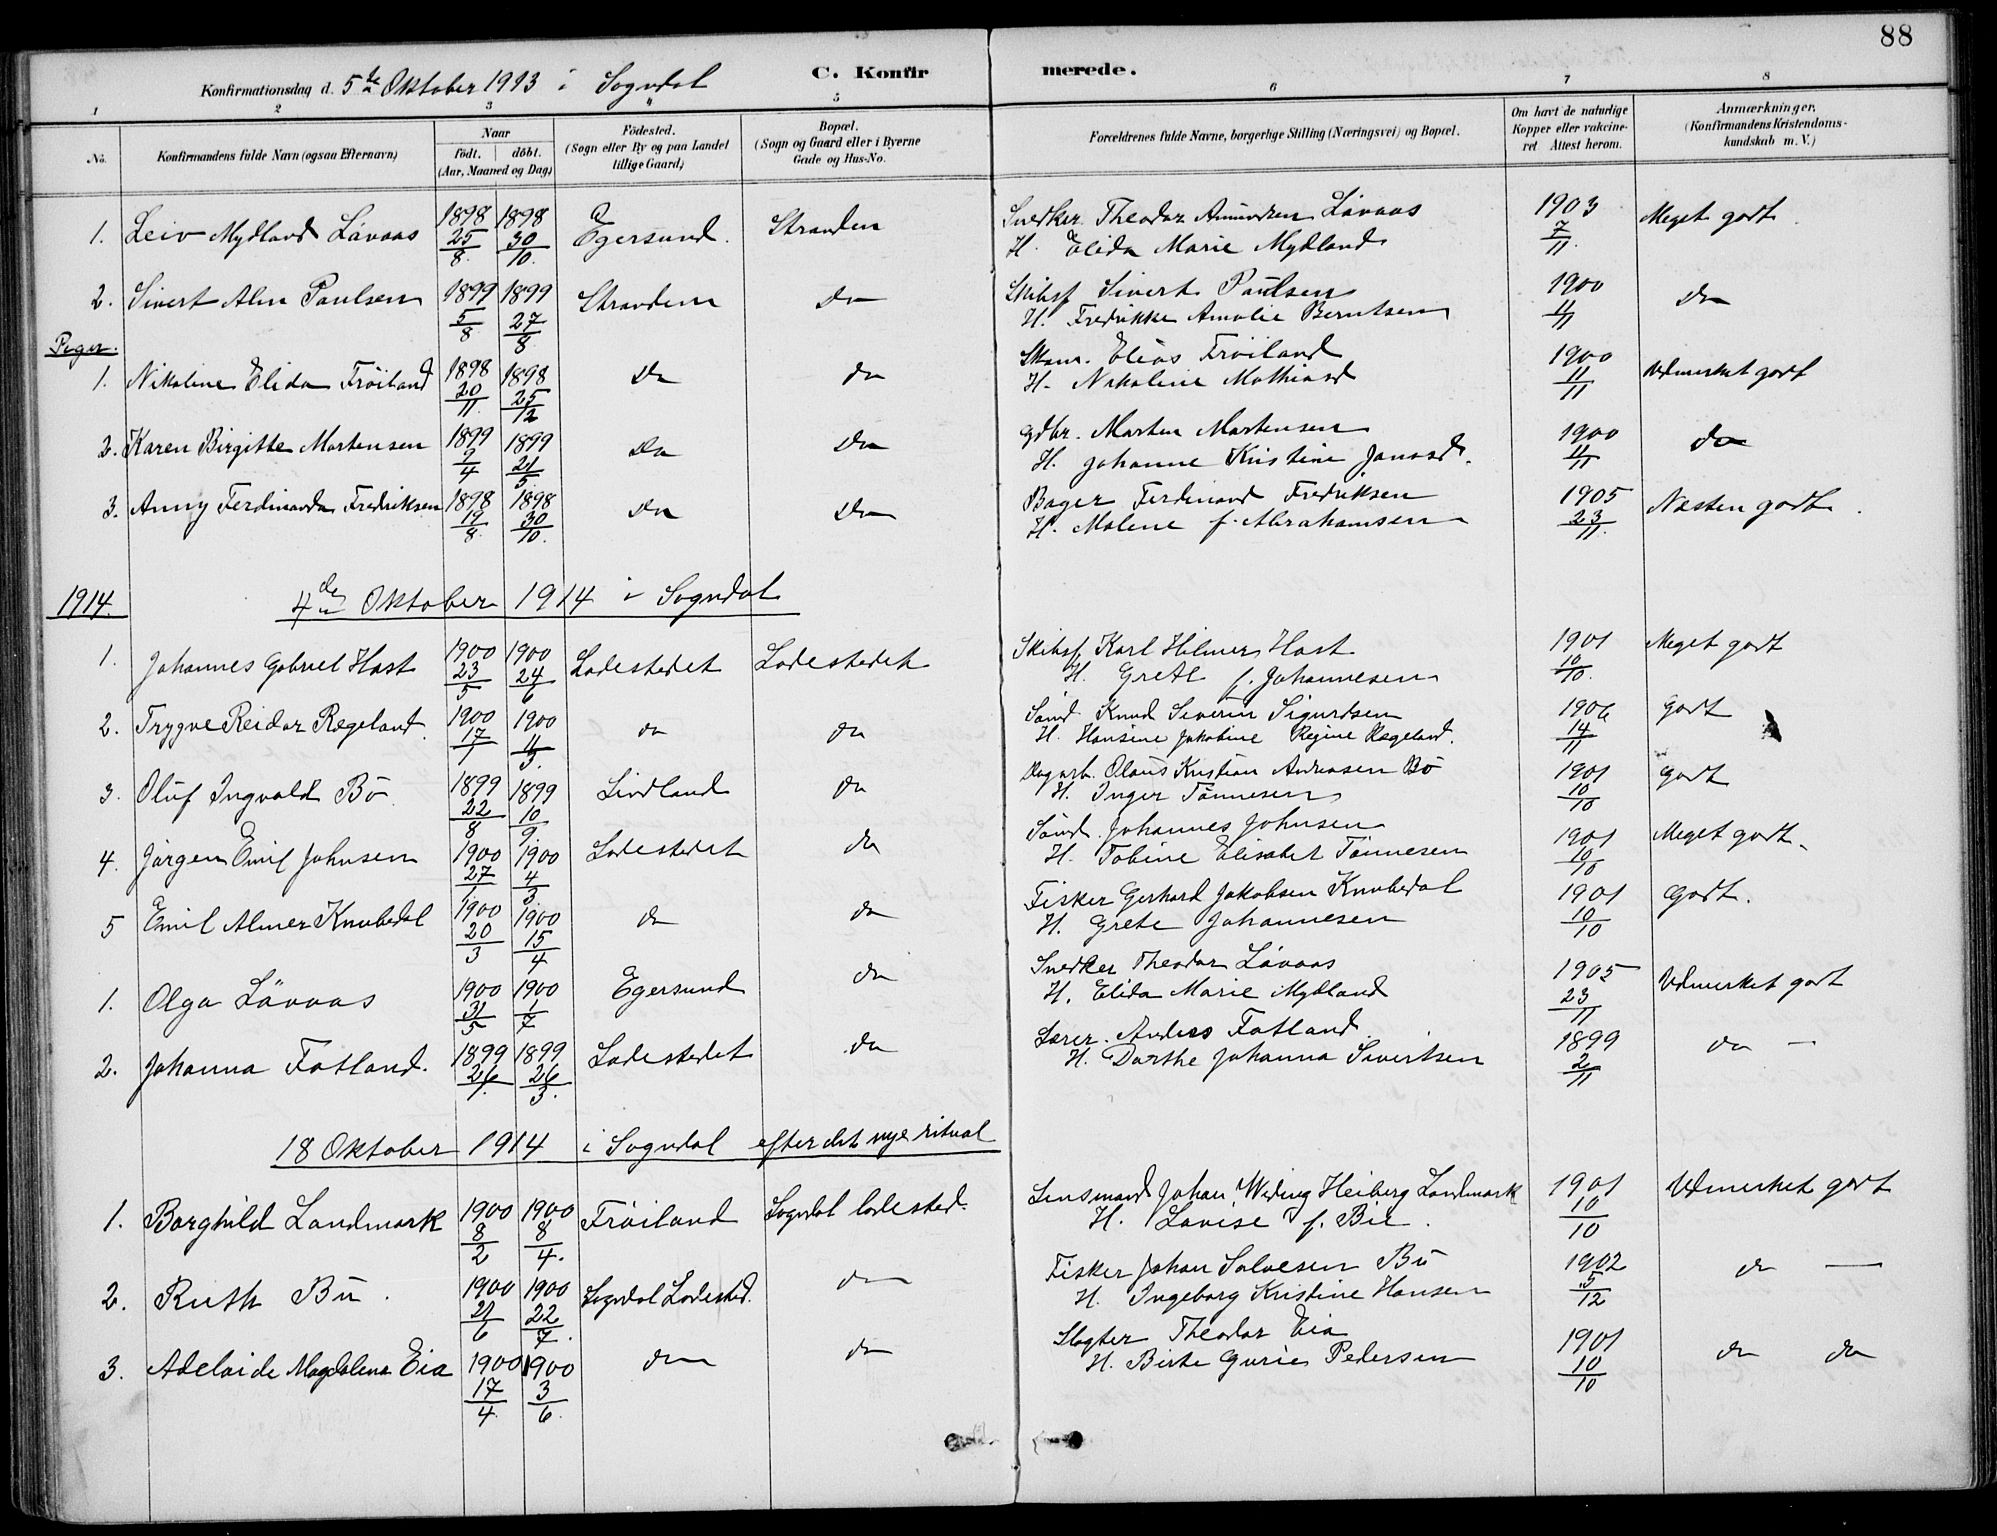 88
Konfirmationsdag d. 5te Oktober 1913 i Sogndal
C. Konfirmerede.
1 2 3 4 5 6 7 8
No. Konfirmandens fulde Navn (ogsaa Efternavn) Naar födt. döbt. (Aar, Maaned og Dag) Födested. (Sogn eller By og paa Landet tillige Gaard) Bopæl. (Sogn og Gaard eller i Byerne Gade og Hus-No. Forældrenes fulde Navne, borgerlige Stilling (Næringsvei) og Bopæl. Om havt de naturlige Kopper eller vaccineret Attest herom. Anmærkninger. (Konfirmandens Kristendomskundskab m. V.)
1. Leiv Mydland Lövaas 1898 25/8 1898 30/10 Egersund. Stranden Snedker Theodor Amundsen Lövaas H. Elida Marie Mydland 1903 7/11. Meget godt.
2. Sivert Alm Paulsen 1899 5/8 1899 27/8 Stranden do Skibsf. Sivert Paulsen H. Fredrikke Amalie Berntsen 1900 11/11 do
Piger.
1. Nikoline Elida Fröiland 1898 20/11. 1898 25/12 do do Skom. Elias Fröiland H. Nikoline Mathiasd 1900 11/11 Udmerket godt
2. Karen Birgitte Martensen 1899 9/4 1899 21/5 do do Gdbr. Marten Martensen H. Johanne Kristine Jonasd. 1900 11/11 do
3. Anny Ferdinanda Fredriksen 1898 19/8. 1898 30/10. do do Bager Ferdinand Fredriksen H. Malene f. Abrahamsen 1905 23/11. Næsten godt.
1914. 4de Oktober 1914 i Sogndal
1. Johannes Gabriel Hast 1900 23/5 1900 24/6 Ladestedet Ladestedet Skibsf. Karl Hilmer Hast H. Grete f. Johannesen 1901 10/10. Meget godt
2. Trygve Reidar Rægeland. 1900 17/1 1900 11/3. do do Sömd. Knud Severin Sigurdsen H. Hansine Jakobine Regine Rægeland. 1906 14/11 godt
3. Oluf Ingvald Bö. 1899 22/8 1899 10/9. Lindland do Dagarb. Olaus Kristian Andreasen Bö H. Inger Tönnesen 1901 10/10 godt
4. Jörgen Emil Johnsen 1900 27/1 1900 4/3. Ladestedet do Sömd. Johannes Johnsen H. Tobine Elisabet Tönnesen 1901 10/10 Meget godt.
5 Emil Almer Knubedal 1900 20/3 1900 15/4 do do Fisker Gerhard Jakobsen Knubedal H. Grete Johannesen 1901 10/10 Godt.
1. Olga Lövaas 1900 31/5 1900 1/7 Egersund do Snedker Theodor Lövaas H. Elida Marie Mydland 1905 23/11 Udmerket godt
2. Johanna Fotland. 1899 26/1. 1899 26/3. Ladestedet do Lærer. Anders Fotland. H. Dorthe Johanna Sivertsen 1899 2/11 do —
18 Oktober 1914 i Sogndal efter det nye ritual
1. Borghild Landmark 1900 8/2 1900 8/4. Fröiland Sogndal ladested. Lensmand Johan Widing Heiberg Landmark H. Lovise f. Bie. 1901 10/10 Udmerket godt
2. Ruth Bö. 1900 21/6 1900 22/7. Sogndal Ladested. do Fisker Johan Salvesen Bö H. Ingeborg Kristine Hansen 1902 5/12 do —
3. Adelaide Magdalena Eia 1900 17/4. 1900 3/6. do do Slagter Theodor Eia H. Birte Gurie Pedersen 1901 10/10 do do